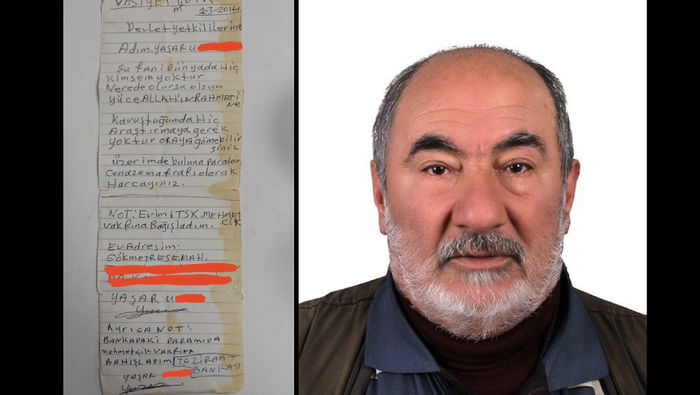 VASİYETİMDİR
M 1-3-2014
Devlet yetkililerine
Adım. YAŞAR U
Şu fani Dünyada Hiç
kimsem yoktur
Nerede olursa olsun
yüce ALLAH'IN RAHMETİ
NE
Kavuştuğumda Hiç
Araştırmaya gerek
yoktur ORAYA gömebilir
siniz
üzerimde buluna paraları
cenaze masrafı olarak
Harcayınız.
NOT: Evimi TSK. MEHMET
CİK
vakfına Bağışladım.
Ev Adresim.
GÖKMEYDAN MAH.
YAŞAR U
Ayrıca NOT:
BANKADAKİ PARAMIDA
mehmetçik VAKFINA
BAĞIŞLADIM TC ZİRAAT
YAŞAR BANKASI